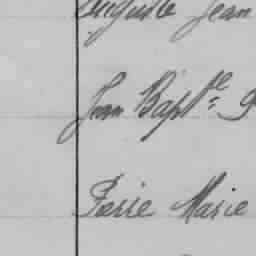 Auguste Jean
Jean Bapt^te
Pierre Marie